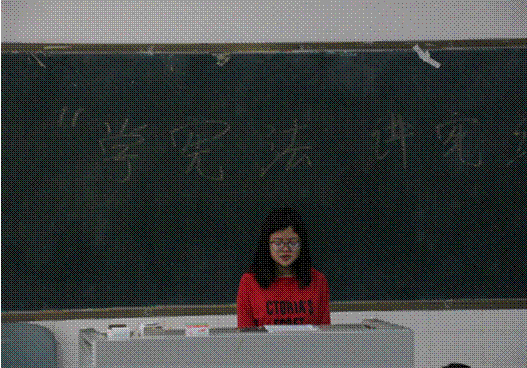 "学宪法 讲宪
CTORIA'S